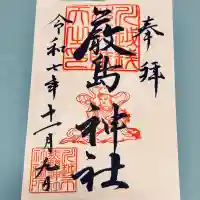 奉拝
厳島神社
令和七年十一月九日